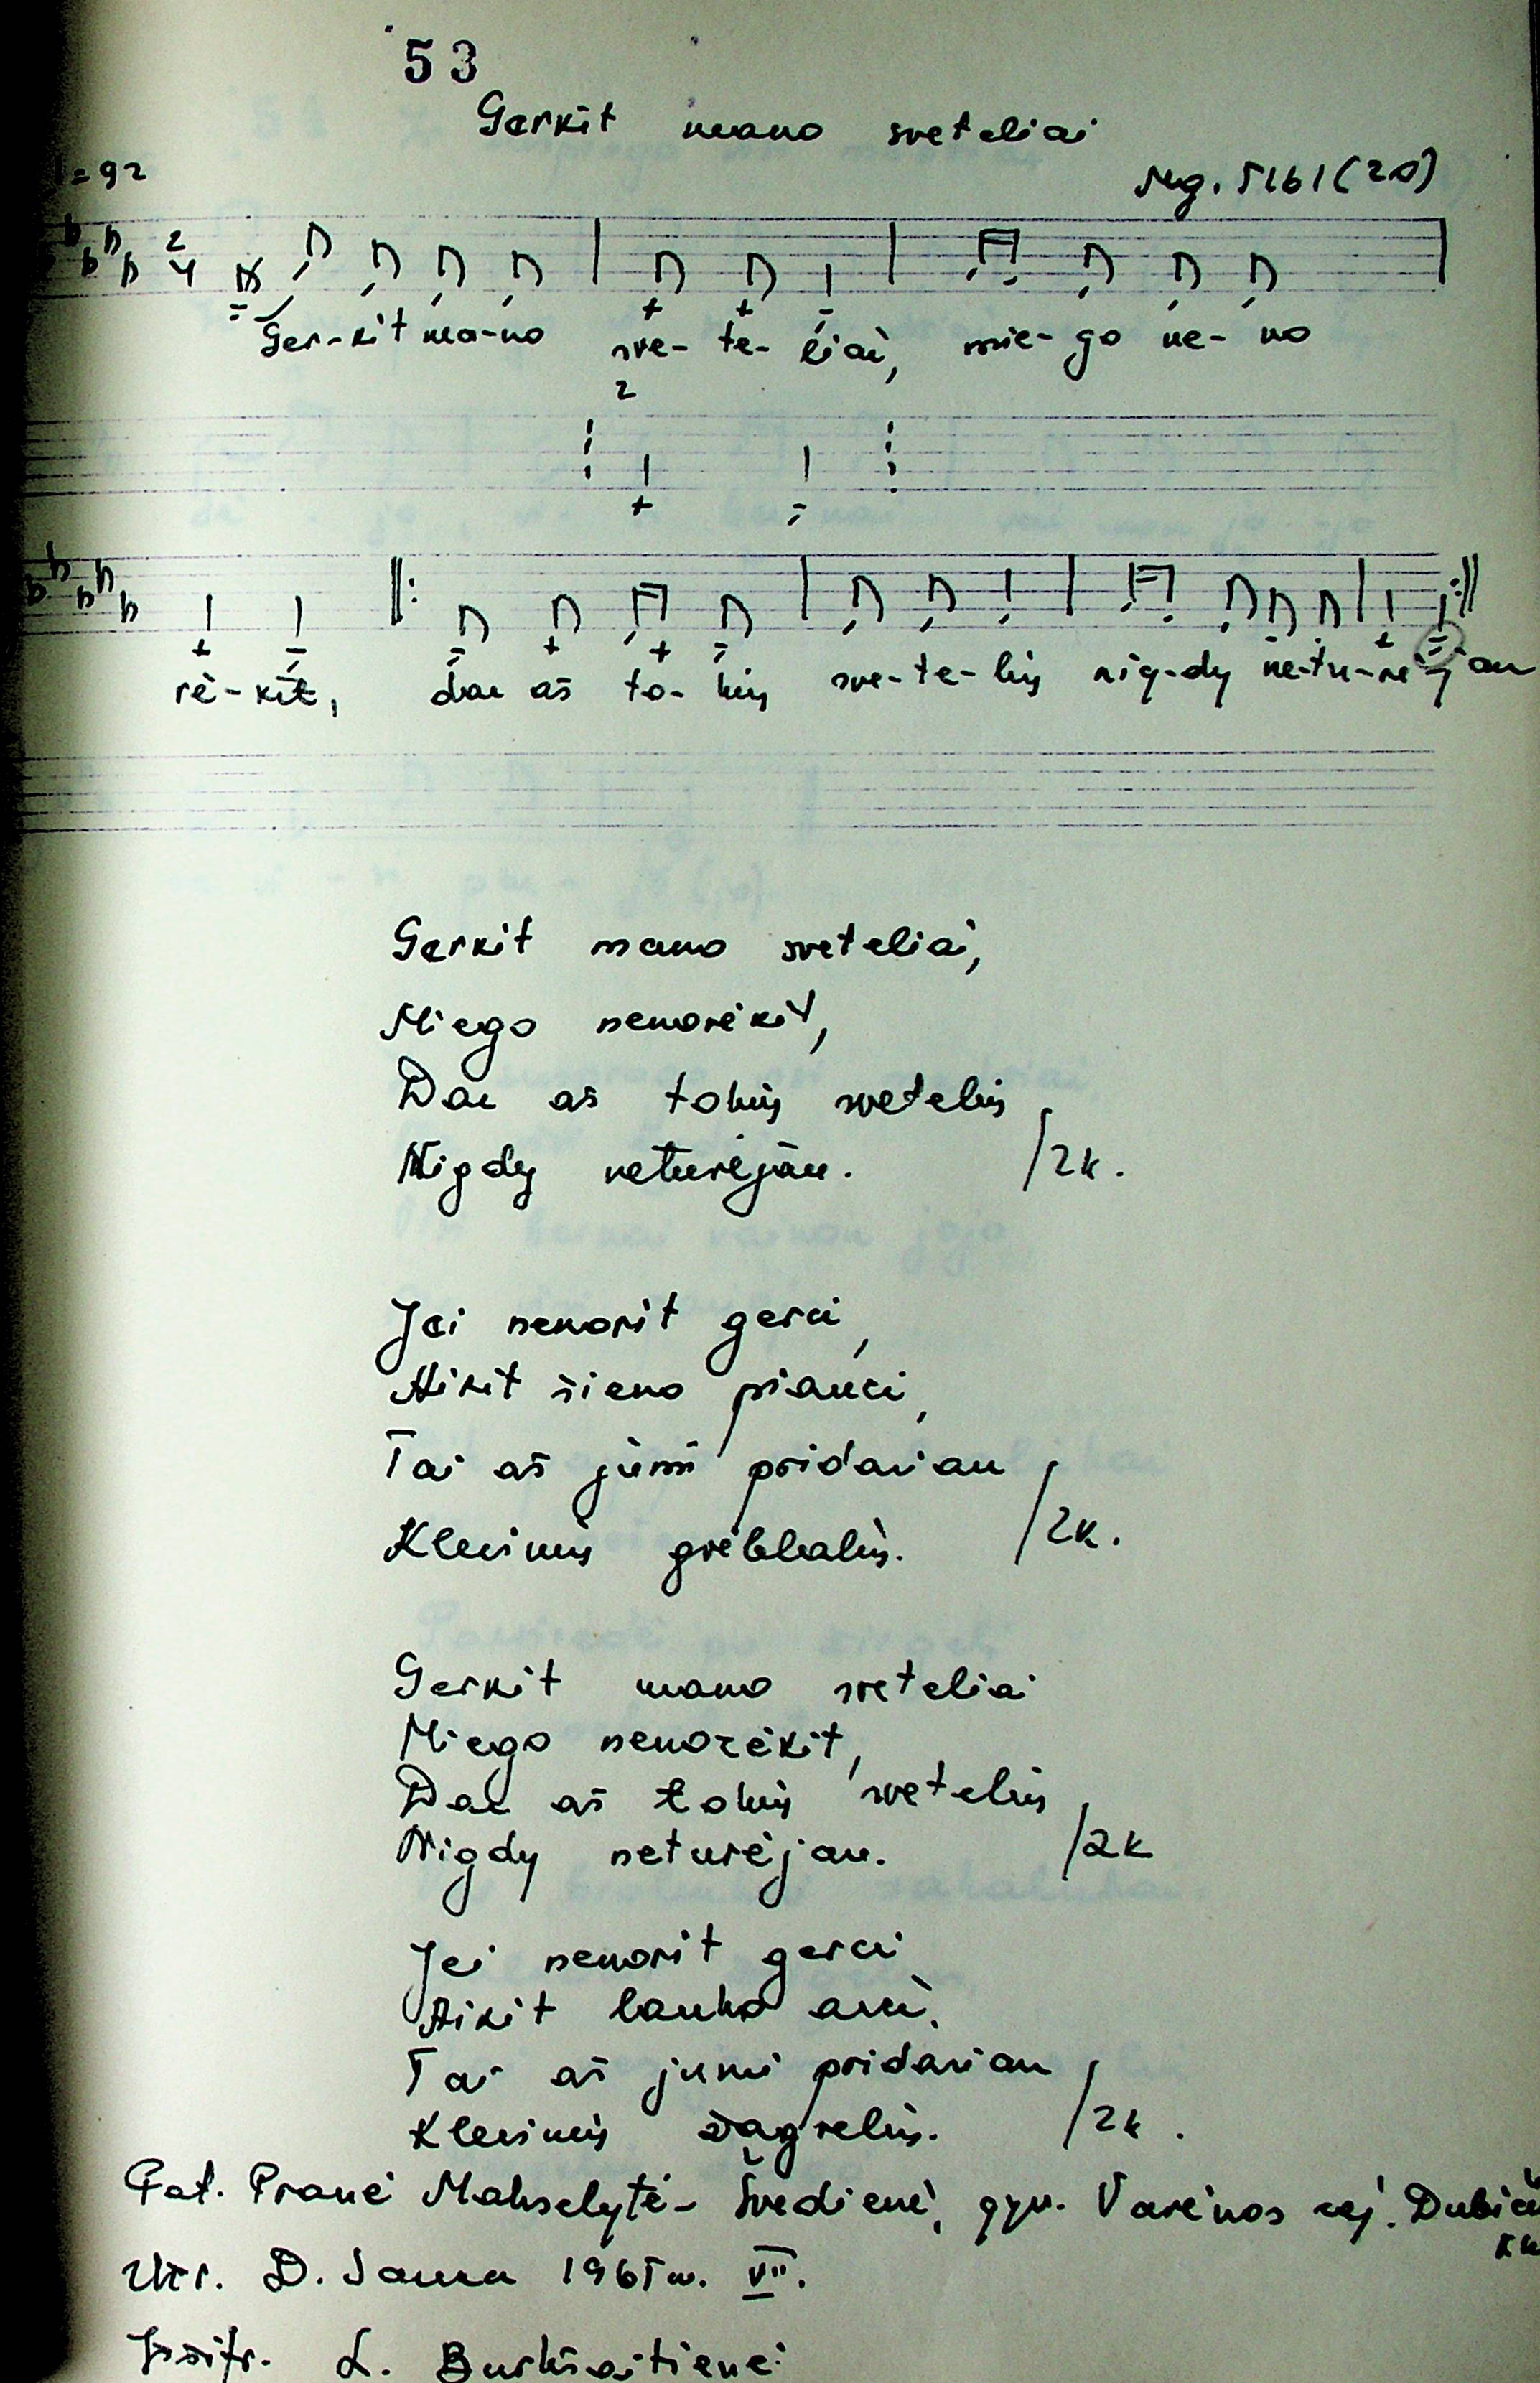 53
Gerkit mano sveteliai
Mg. 5161(20)
=92
2
4
Ger-kit ma-no sve-te-liai, mie-go ne-no
2
rė-kit, dar aš to-kių sve-te-lių nig-dy ne-tu-rė-jau
Gerkit mano sveteliai,
Miego nenorėkit,
Dar aš tokių svetelių
Nigdy neturėjau. /2k.
Jei nenorit gerci,
Aikit šieno pjauci,
Tai aš jumi pridariau
Klevinių grėblialių. /2k.
Gerkit mano sveteliai
Miego nenorėkit,
Dar aš tokių svetelių
Nigdy neturėjau. /2k
Jei nenorit gerci
Aikit lauko arci,
Tai aš jumi pridariau
Klevinių žagrelių. /2k.
Pat. Pranė Makselytė- Švedienė, gyv. Varėnos raj.
Užr. D. 1965 m. VII.
Iššifr. L. Burkšaitienė